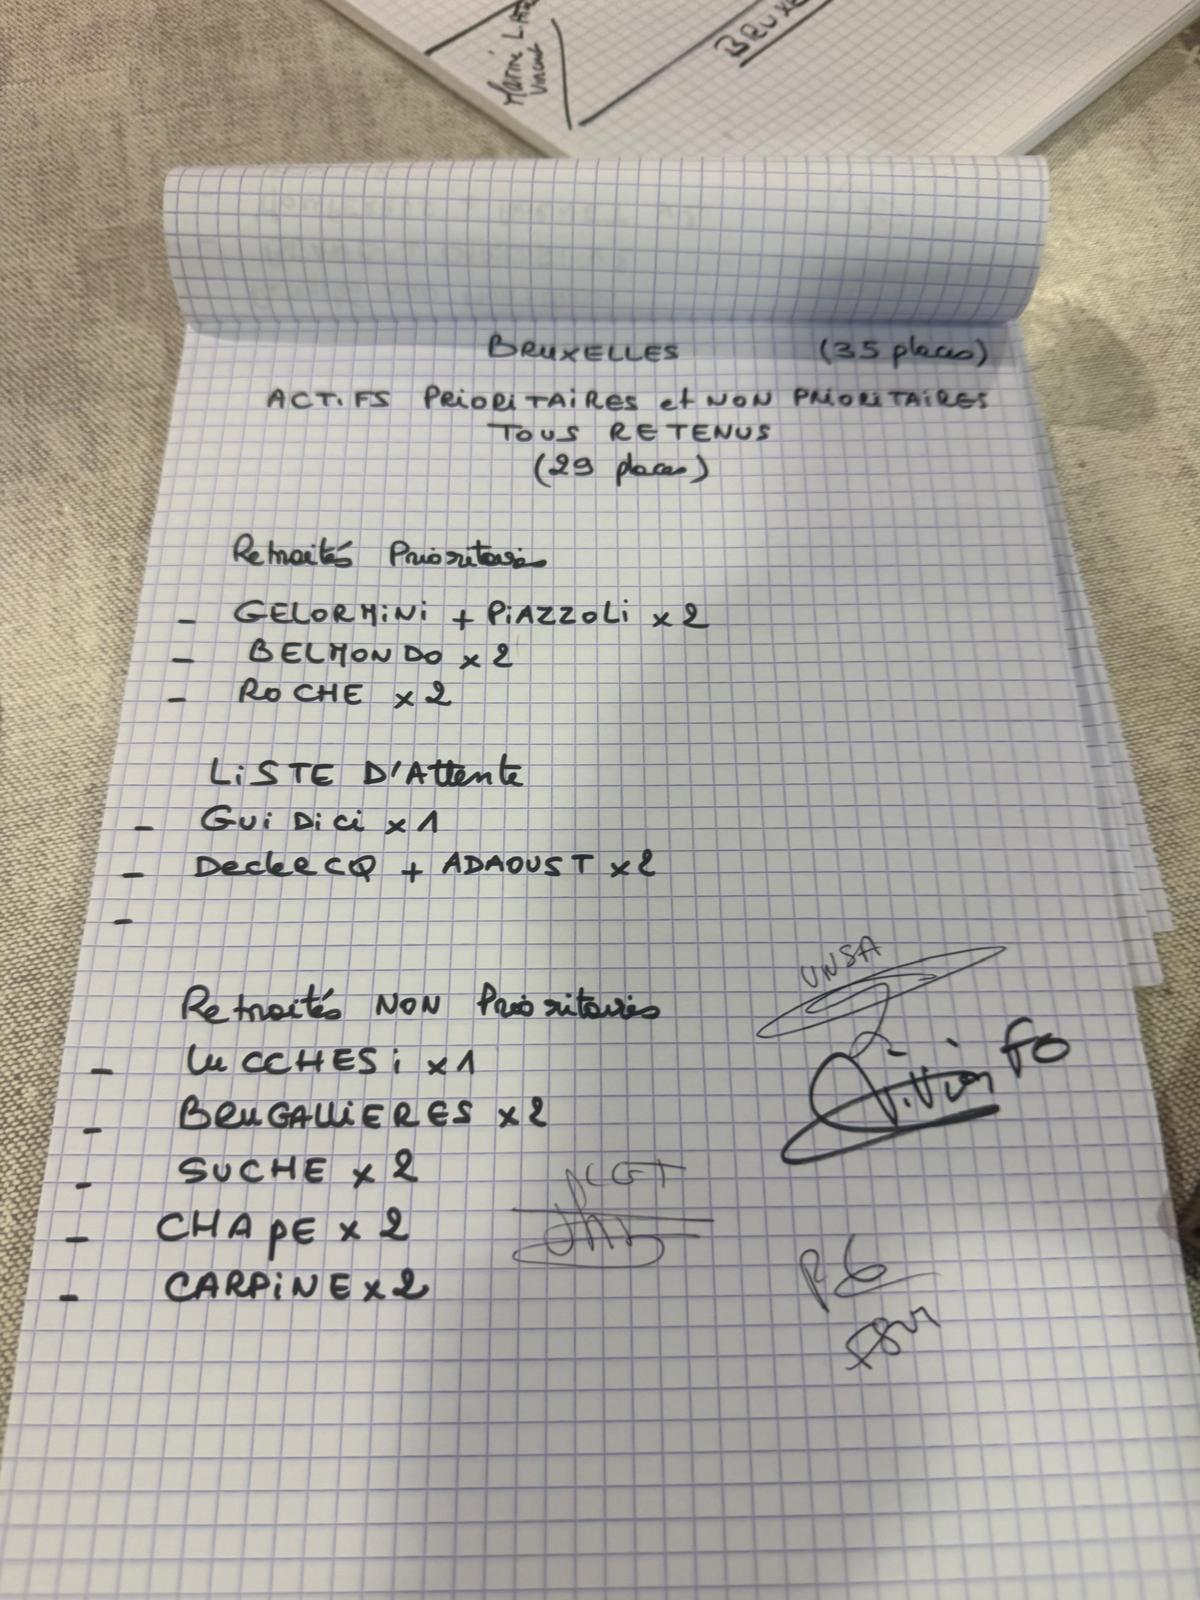 BRUXE
BRUXELLES (35 places)
ACTIFS PRIORITAIRES et NON PRIORITAIRES
TOUS RETENUS
(29 places)
Retraités Prioritaires
- GELORMiNi + PiAZZOLi x 2
- BELMONDO x 2
- ROCHE x 2
LiSTE D'Attente
- GuiDici x 1
- DecleRCQ + ADAOUST x 2
-
Retraités NON Prioritaires
- LuCCHESi x 1
- BRUGALLiERES x 2
- SUCHE x 2
- CHAPE x 2
- CARPiNE x 2
UNSA
FO
CGT